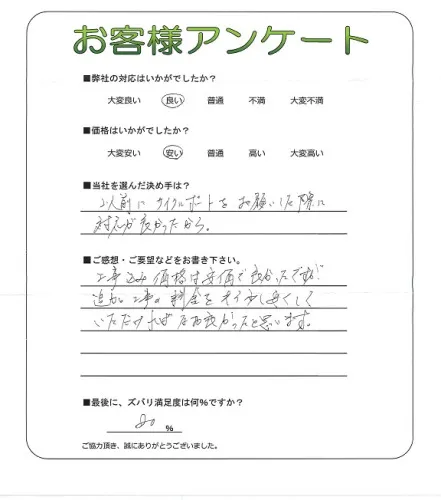 お客様アンケート
■弊社の対応はいかがでしたか？
大変良い 良い 普通 不満 大変不満
■価格はいかがでしたか？
大変安い 安い 普通 高い 大変高い
■当社を選んだ決め手は？
以前に サイクルポートを お願いした際に
対応が良かったから。
■ご感想・ご要望などをお書き下さい。
工事込み価格は安価で良かったですが
追加工事の料金をもう少し安くして
いただければ尚良かったと思います。
■最後に、ズバリ満足度は何%ですか？
80 %
ご協力頂き、誠にありがとうございました。